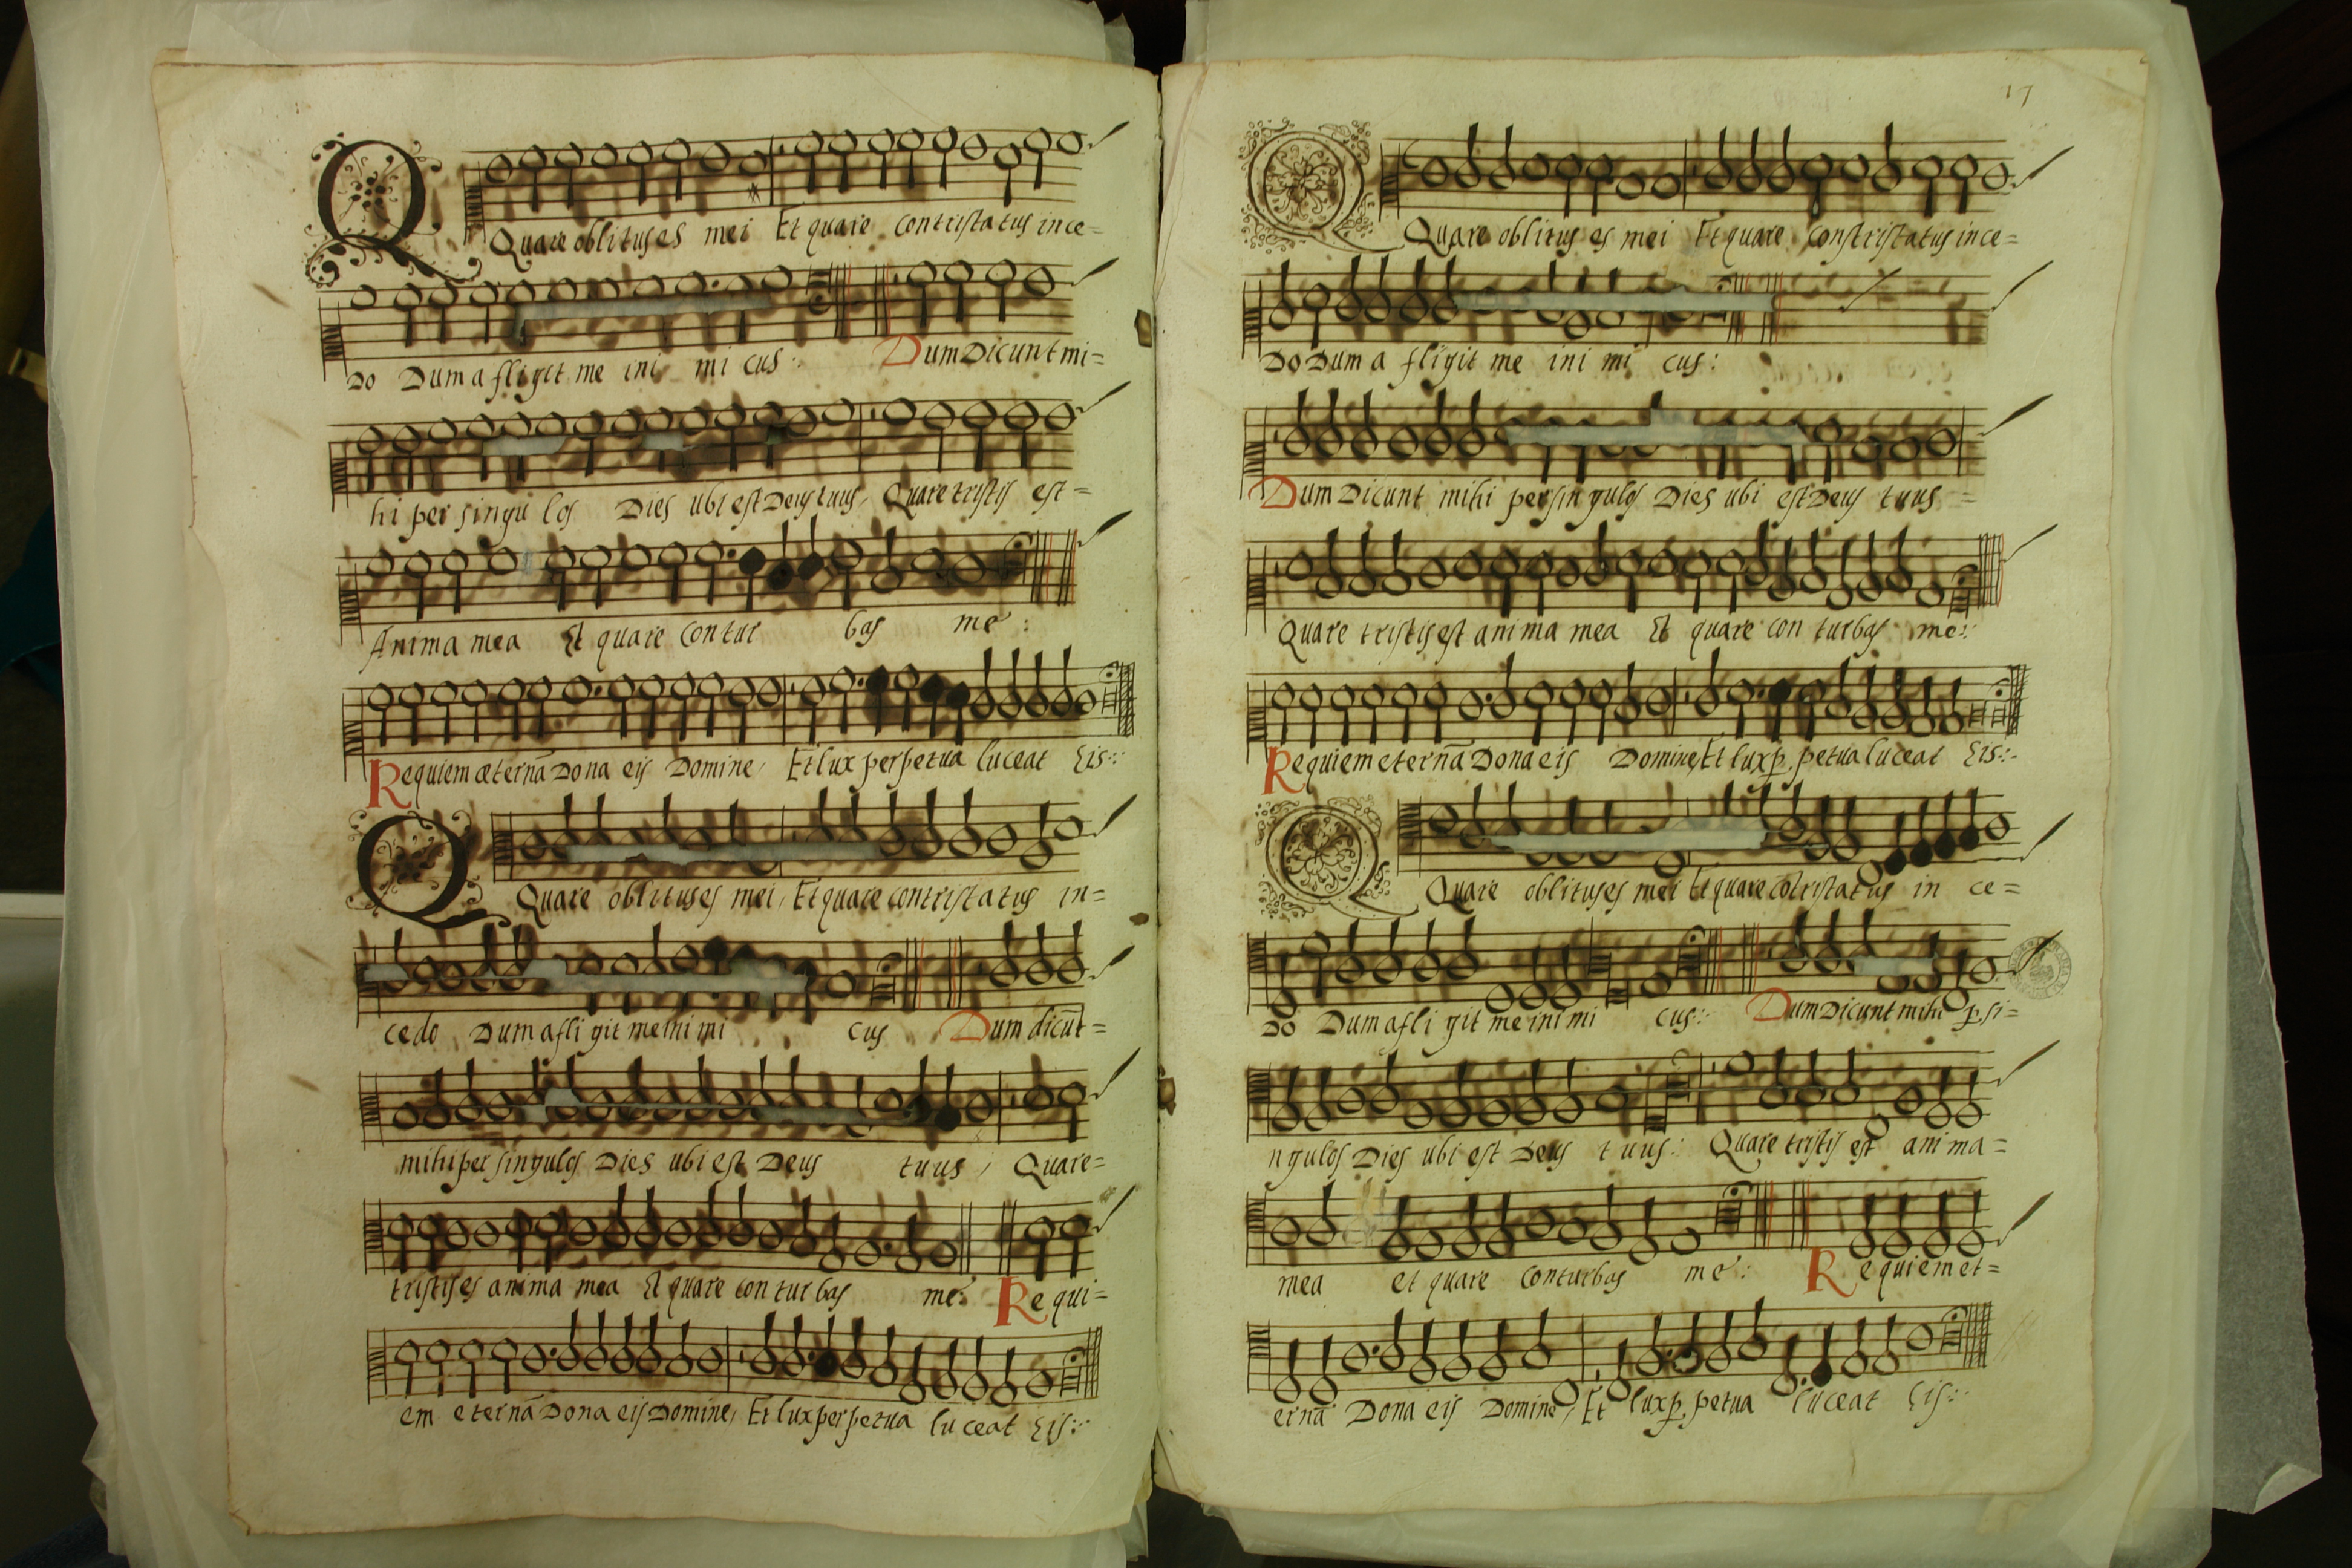 Quare oblitus es mei Et quare contristatus ince=
do Dum afligit me ini mi cus: Dum Dicunt mi=
hi per singu los Dies ubi est Deus tuus, Quare tristis est=
Anima mea Et quare contur bas me:
Requiem æternã Dona eis Domine, Et lux perpetua luceat Eis:
Quare oblitus es mei, Et quare contristatus in=
cedo Dum afli git me ini mi cus Dum dicũt=
mihi per singulos Dies ubi est Deus tuus, Quare=
tristis es anima mea Et quare con tur bas me: Requi=
em eternã Dona eis Domine, Et lux perpetua lu ceat Eis:
17
Quare oblitus es mei Et quare constristatus in ce=
Do Dum a fligit me ini mi cus:
Dum Dicunt mihi per singulos Dies ubi est Deus tuus=
Quare tristis est anima mea Et quare con turbas me:
Requiem eternã Dona eis Domine, Et lux p. petua luceat Eis:
Quare oblitus es mei Et quare cõtristatus in ce=
do Dum afli git me ini mi cus: Dum Dicunt mihi p si=
ngulos Dies ubi est Deus tuus: Quare tristis est anima=
mea et quare conturbas me: Requiem et=
ernã Dona eis Domine, Et lux p. petua luceat Eis: